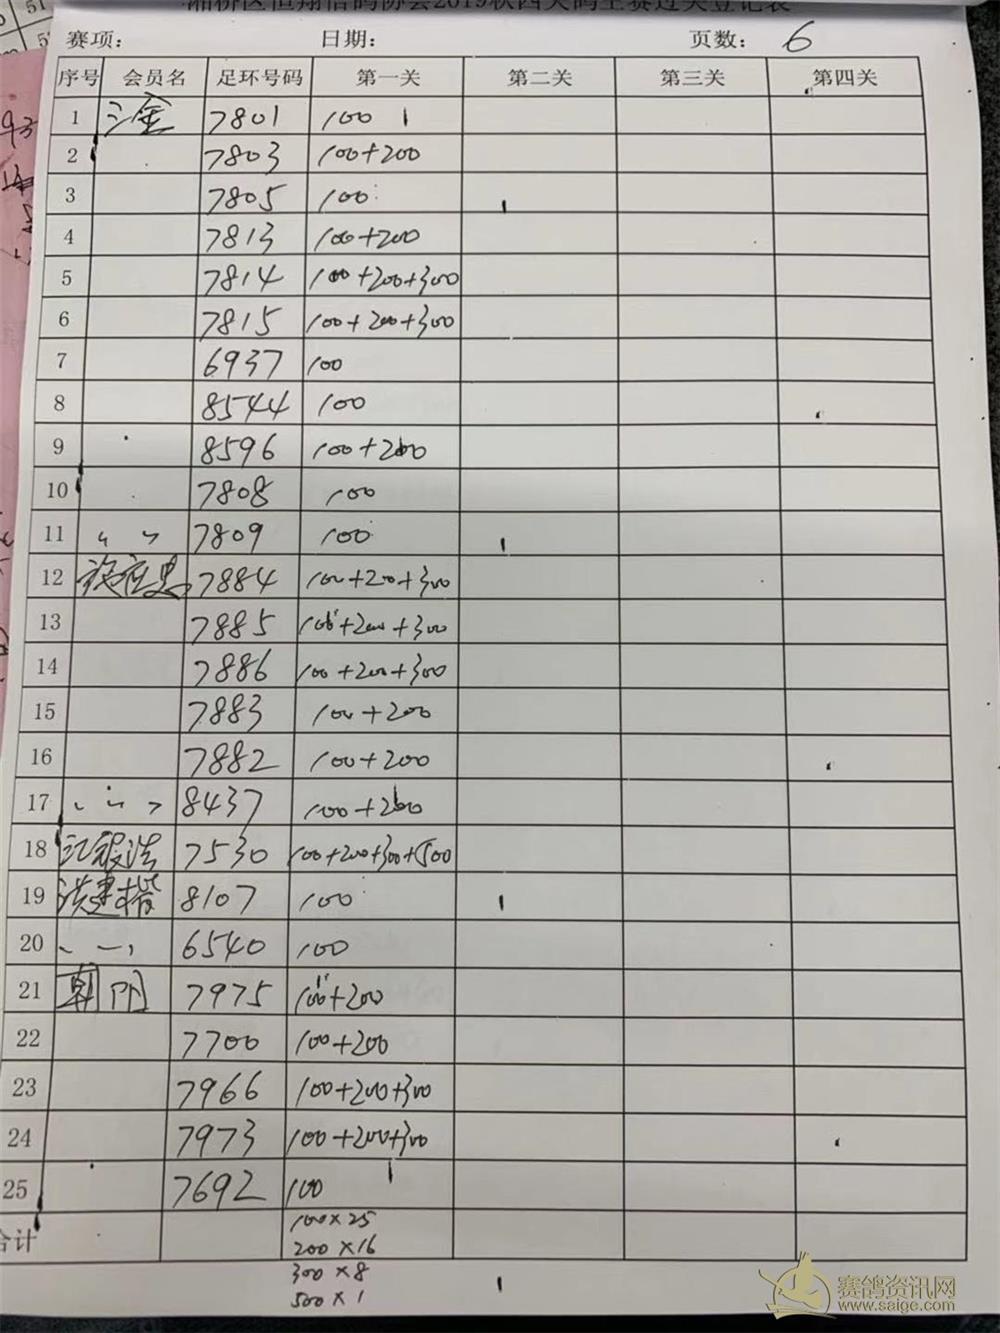 湘桥区恒翔信鸽协会2019秋四关鸽王赛过关登记表
赛项: 日期: 页数: 6
序号 会员名 足环号码 第一关 第二关 第三关 第四关
1 三金 7801 100
2 7803 100+200
3 7805 100
4 7813 100+200
5 7814 100+200+300
6 7815 100+200+300
7 6937 100
8 8544 100
9 8596 100+200
10 7808 100
11 〃 7809 100
12 7884 100+200+300
13 7885 100+200+300
14 7886 100+200+300
15 7883 100+200
16 7882 100+200
17 〃 8437 100+200
18 江银浩 7530 100+200+300+500
19 洪建楷 8107 100
20 〃 6540 100
21 朝阳 7975 100+200
22 7700 100+200
23 7966 100+200+300
24 7973 100+200+300
25 7692 100
合计 100×25
200×16
300×8
500×1
赛鸽资讯网
www.saige.com